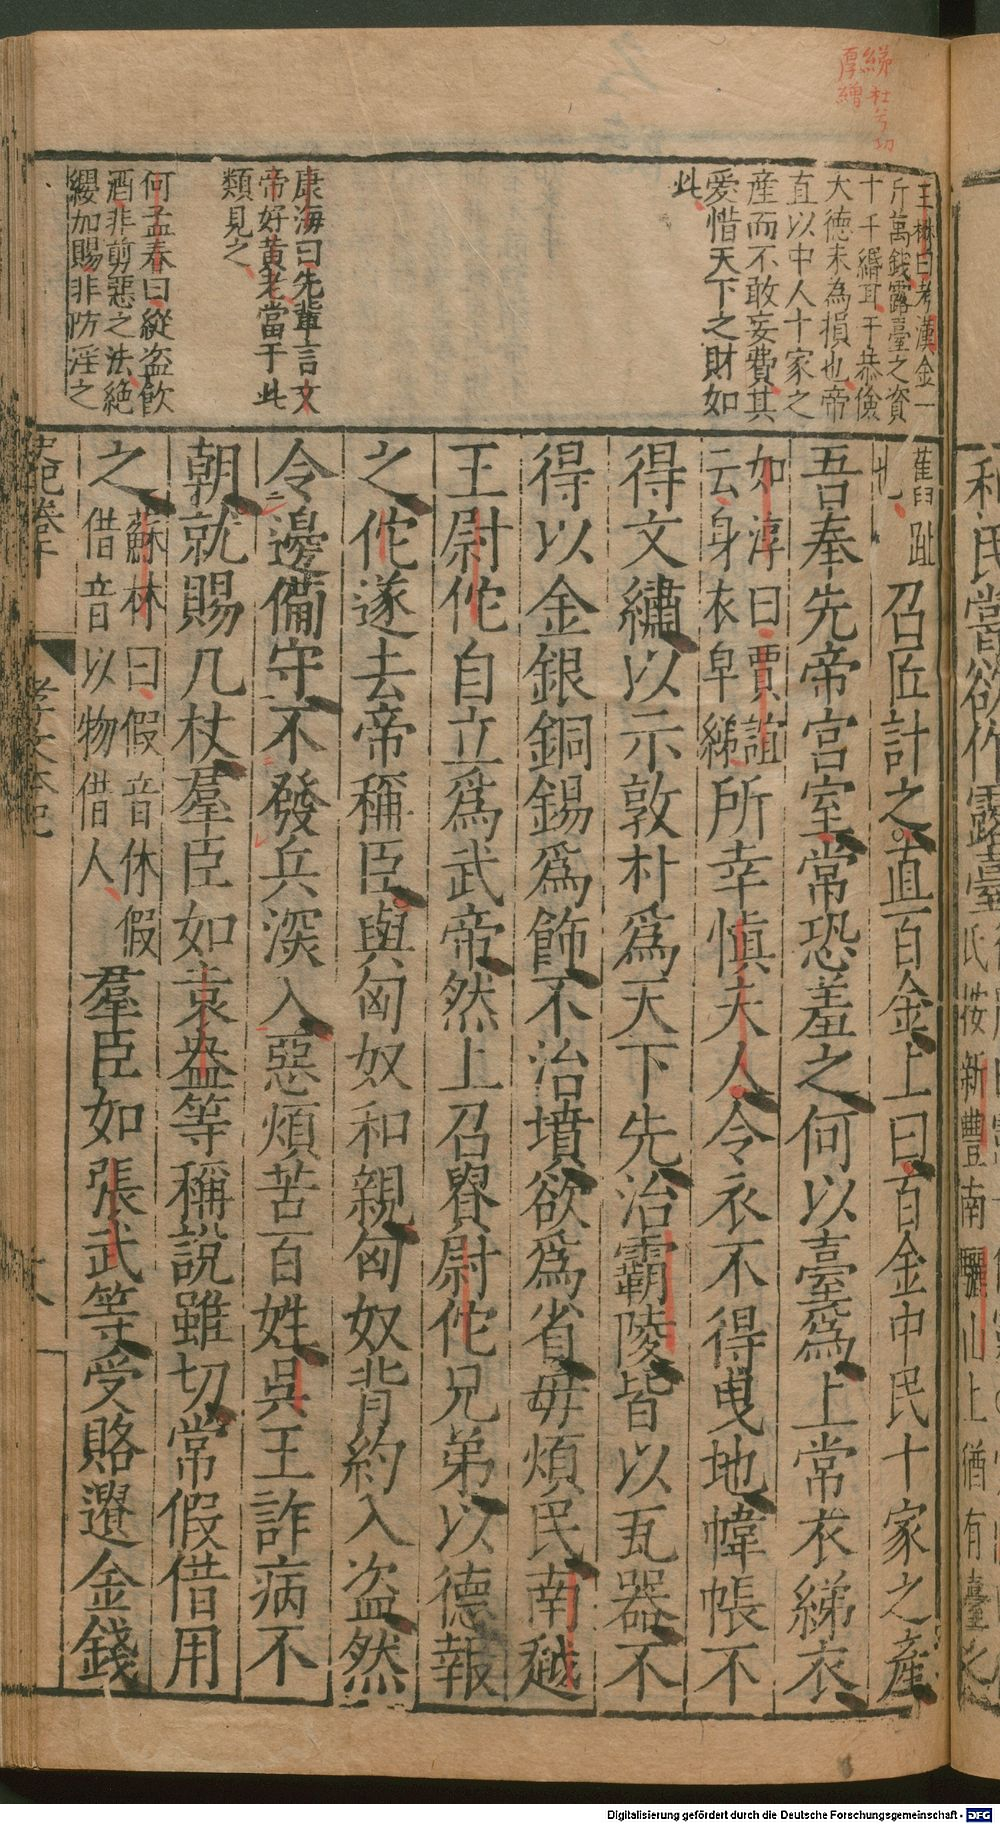 綈杜兮切
厚繒
王楙曰考漢金一
斤萬錢露臺之資
十千緡耳干恭儉
大德未為損也帝
直以中人十家之
産而不敢妄費其
愛惜天下之財如
此
康海曰先輩言文
帝好黃老當于此
類見之
何孟春曰縱盗飲
酒非剪惡之法絶
纓加賜非防淫之
舊臼趾
也
召匠計之直百金上曰百金中民十家之產
吾奉先帝宫室常恐羞之何以臺爲上常衣綈衣
如淳曰賈誼
云身衣皁綈
所幸慎夫人令衣不得曳地幃帳不
得文繡以示敦朴爲天下先治霸陵皆以瓦器不
得以金銀銅錫爲飾不治墳欲爲省毋煩民南越
王尉佗自立爲武帝然上召貴尉佗兄弟以德報
之佗遂去帝稱臣與匈奴和親匈奴背約入盗然
令邊備守不發兵深入惡煩苦百姓吳王詐病不
朝就賜几杖羣臣如袁盎等稱說雖切常假借用
之
蘇林曰假音休假
借音以物借人
羣臣如張武等受賂遺金錢
史記卷十
孝文本紀
氏按新豐南驪山上猶有臺之
Digitalisierung gefördert durch die Deutsche Forschungsgemeinschaft - DFG